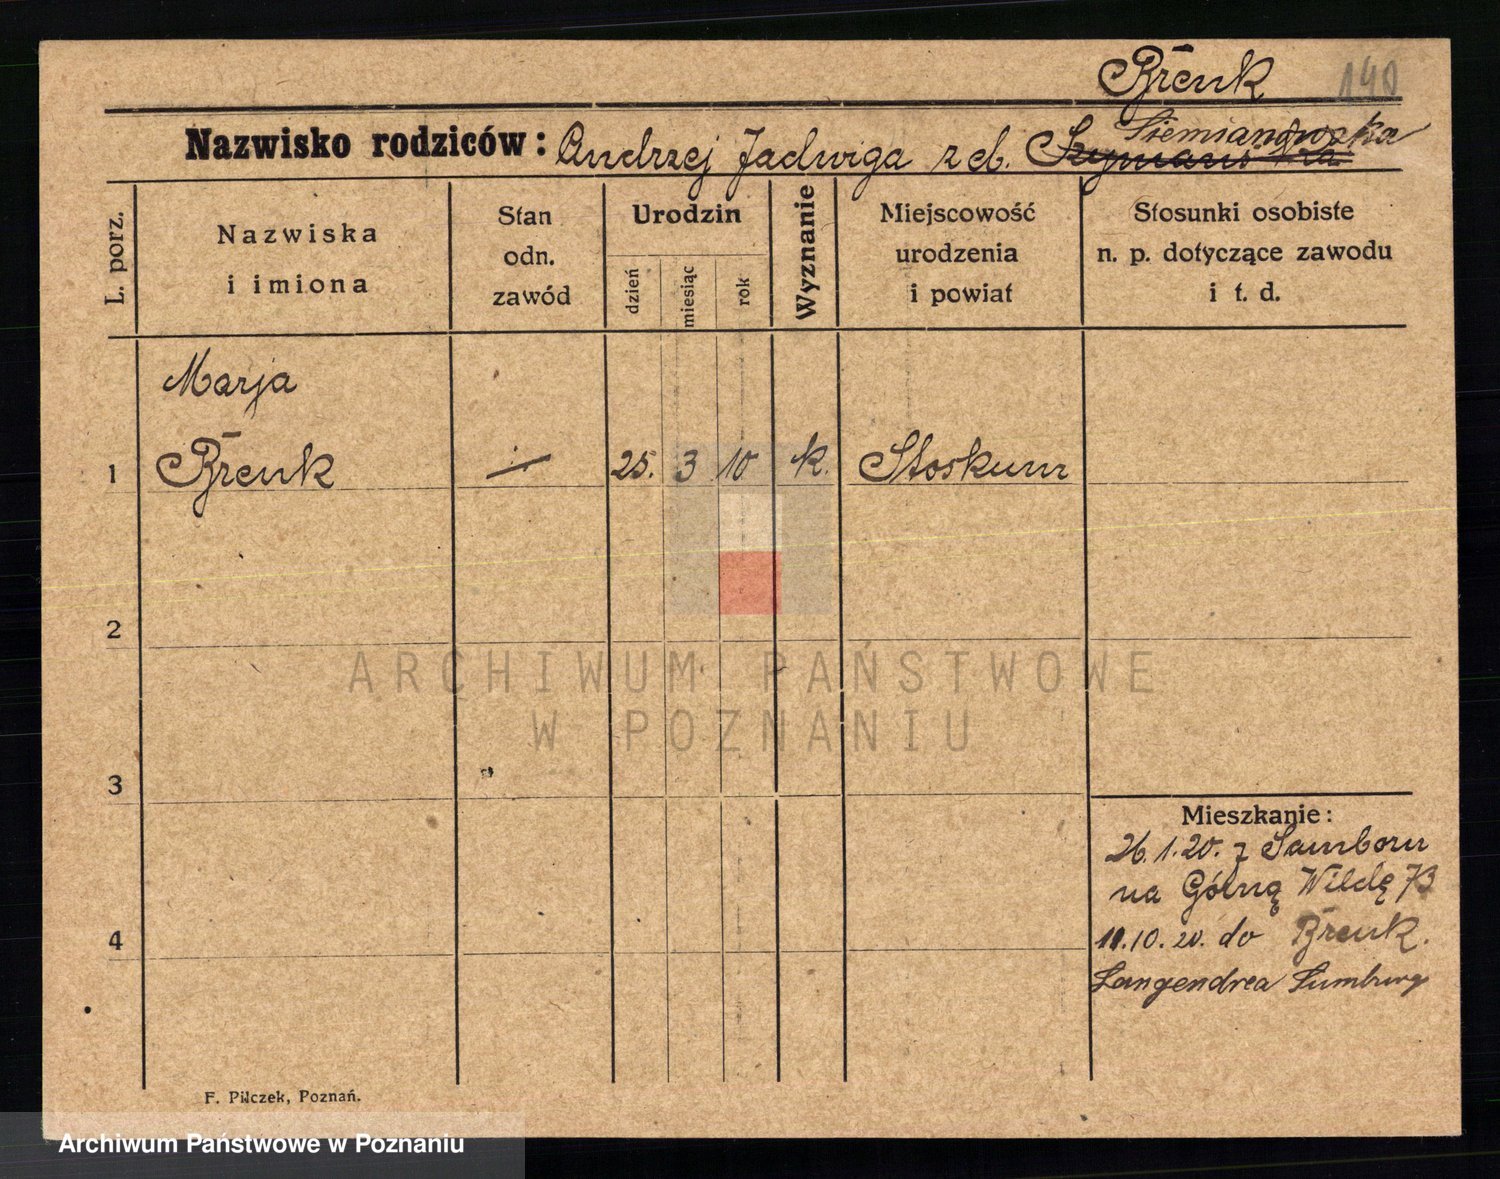 Brenk 140
Nazwisko rodziców: Andrzej Jadwiga z d. Szymańska Siemianowska
L. porz.
Nazwiska i imiona
Stan odn. zawód
Urodzin
dzień
miesiąc
rok
Wyznanie
Miejscowość urodzenia i powiat
Stosunki osobiste n. p. dotyczące zawodu i t. d.
Marja
1 Brenk 25. 3 10 k. Stoskum
2
3
4
Mieszkanie:
26.1.20. z Samboru
na Górną Wildę 73
11.10.20. do Brenk.
Langendrea Lumburg
F. Pilczek, Poznań.
ARCHIWUM PAŃSTWOWE
W POZNANIU
Archiwum Państwowe w Poznaniu